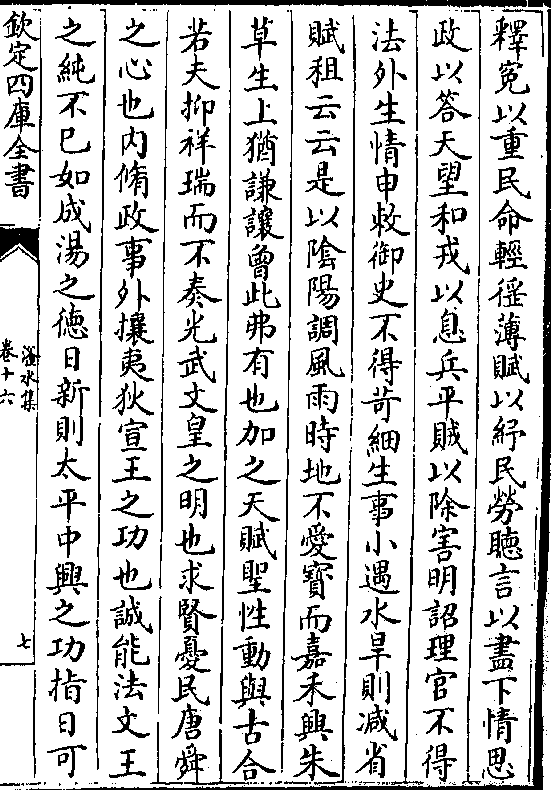 釋寃以重民命輕徭薄賦以紓民勞聽言以盡下情思
政以答天望和戎以息兵平賊以除害明詔理官不得
法外生情申敕御史不得苛細生事小遇水旱則减省
賦租云云是以陰陽調風雨時地不愛寳而嘉禾興朱
草生上猶謙讓曾此弗有也加之天賦聖性動與古合
若夫抑祥瑞而不奏光武文皇之明也求賢憂民唐舜
之心也内脩政事外攘夷狄宣王之功也誠能法文王
之純不已如成湯之德日新則太平中興之功指日可
欽定四庫全書
滏水集
卷十六
七